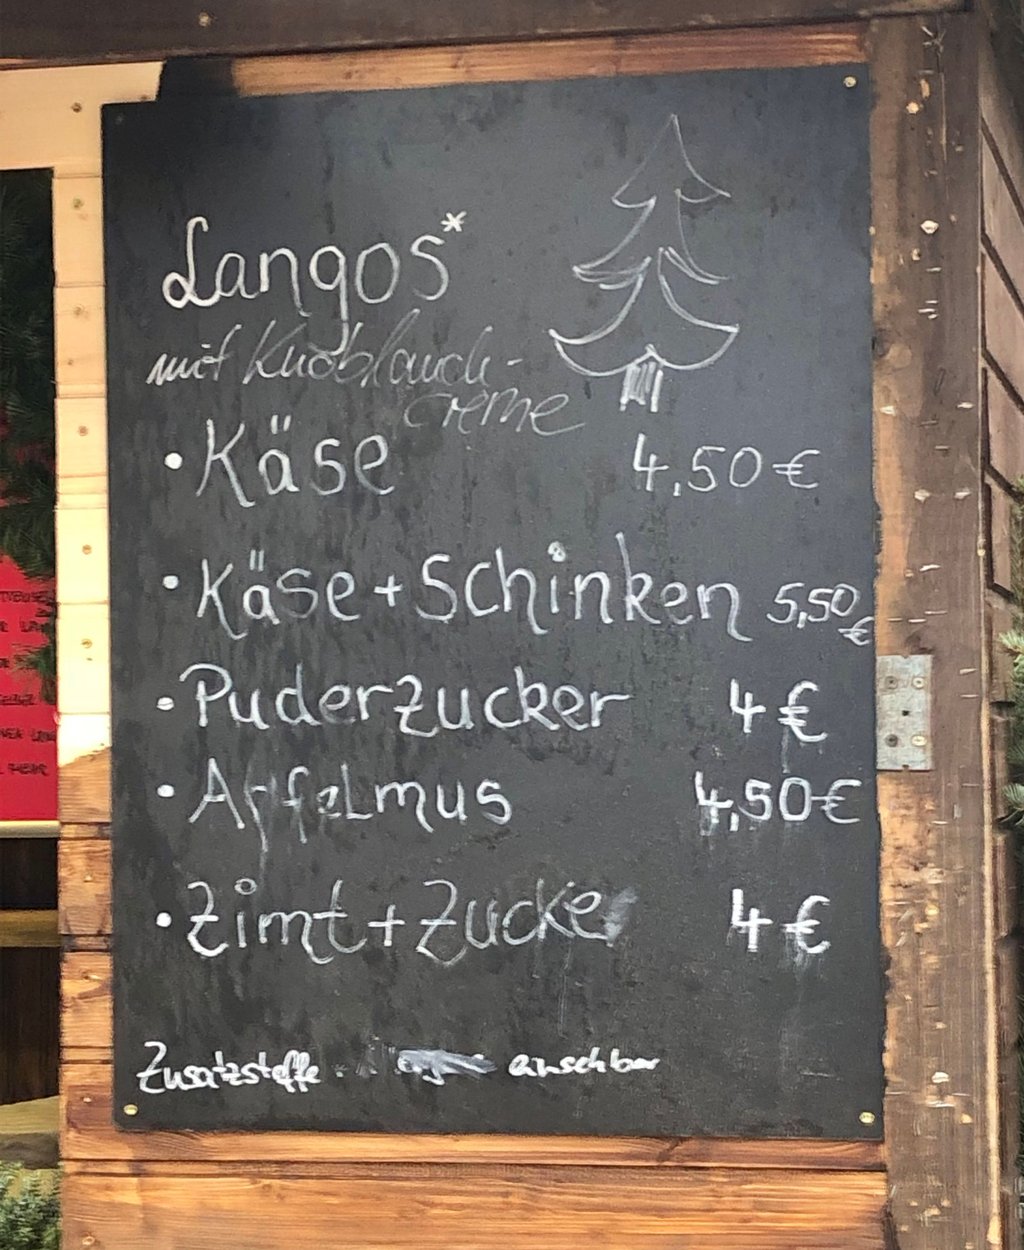 Langos*
mit Knoblauch-
creme
• Käse 4,50 €
• Käse + Schinken 5,50 €
• Puderzucker 4 €
• Apfelmus 4,50 €
• Zimt + Zucker 4 €
Zusatzstoffe einsehbar